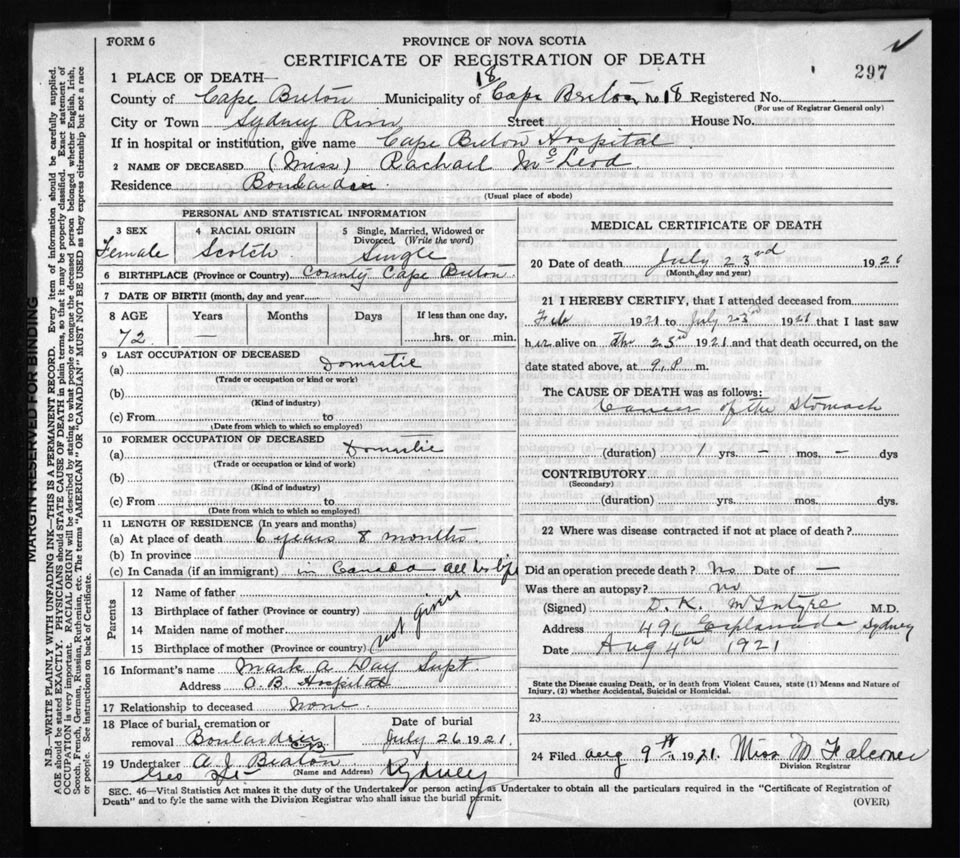 FORM 6
PROVINCE OF NOVA SCOTIA
297
CERTIFICATE OF REGISTRATION OF DEATH
1 PLACE OF DEATH—
18
County of Cape Breton Municipality of Cape Breton No 18 Registered No.
(For use of Registrar General only)
City or Town Sydney River Street House No.
If in hospital or institution, give name Cape Breton Hospital.
2 NAME OF DECEASED (Miss) Rachael McLeod
Residence Boulardrie.
(Usual place of abode)
PERSONAL AND STATISTICAL INFORMATION
3 SEX 4 RACIAL ORIGIN 5 Single, Married, Widowed or Divorced, (Write the word)
Female Scotch Single
6 BIRTHPLACE (Province or Country) County Cape Breton
7 DATE OF BIRTH (month, day and year
8 AGE Years Months Days If less than one day,
72 — hrs. or min.
9 LAST OCCUPATION OF DECEASED
(a) Domestic
(Trade or occupation or kind or work)
(b)
(Kind of industry)
(c) From to
(Date from which to which so employed)
10 FORMER OCCUPATION OF DECEASED
(a) Domestic
(Trade or occupation or kind of work)
(b)
(Kind of industry)
(c) From to
(Date from which to which so employed)
11 LENGTH OF RESIDENCE (In years and months)
(a) At place of death 6 years 8 months.
(b) In province
(c) In Canada (if an immigrant) in Canada all her life
Parents
12 Name of father
13 Birthplace of father (Province or country)
14 Maiden name of mother
15 Birthplace of mother (Province or country)
not given
16 Informant's name Mark A Day Supt.
Address C. B. Hospital
17 Relationship to deceased None.
18 Place of burial, cremation or Date of burial
removal Boulardrie CB July 26 1921.
19 Undertaker A J Beaton
(Name and Address)
Geo St Sydney
MEDICAL CERTIFICATE OF DEATH
20 Date of death July 23rd 1921
(Month, day and year)
21 I HEREBY CERTIFY, that I attended deceased from
Feb 1921 to July 23rd 1921 that I last saw
her alive on the 23rd 1921 and that death occurred, on the
date stated above, at 9 P m.
The CAUSE OF DEATH was as follows:
Cancer of the Stomach
(duration) 1 yrs. — mos. — dys
CONTRIBUTORY
(Secondary)
(duration) yrs. mos. dys.
22 Where was disease contracted if not at place of death?
Did an operation precede death? No Date of —
Was there an autopsy? no
(Signed) D. K. McIntyre M.D.
Address 490 Esplanade Sydney
Date Aug 4th 1921
State the Disease causing Death, or in death from Violent Causes, state (1) Means and Nature of
Injury, (2) whether Accidental, Suicidal or Homicidal.
23
24 Filed Aug 9th 1921. Miss M Falconer
Division Registrar
SEC. 46—Vital Statistics Act makes it the duty of the Undertaker or person acting as Undertaker to obtain all the particulars required in the "Certificate of Registration of
Death" and to fyle the same with the Division Registrar who shall issue the burial permit.
(OVER)
MARGIN RESERVED FOR BINDING
N.B.—WRITE PLAINLY WITH UNFADING INK—THIS IS A PERMANENT RECORD. Every item of information should be carefully supplied.
AGE should be stated EXACTLY. PHYSICIANS should STATE CAUSE OF DEATH in plain terms, so that it may be properly classified. Exact statement of
OCCUPATION is very important. RACIAL ORIGIN will be described by stating to what people or tongue the deceased person belonged whether English, Irish,
Scotch, French, German, Russian, Ruthenian, etc. The terms "AMERICAN" OR "CANADIAN" MUST NOT BE USED as they express citizenship but not a race
or people. See instructions on back of Certificate.